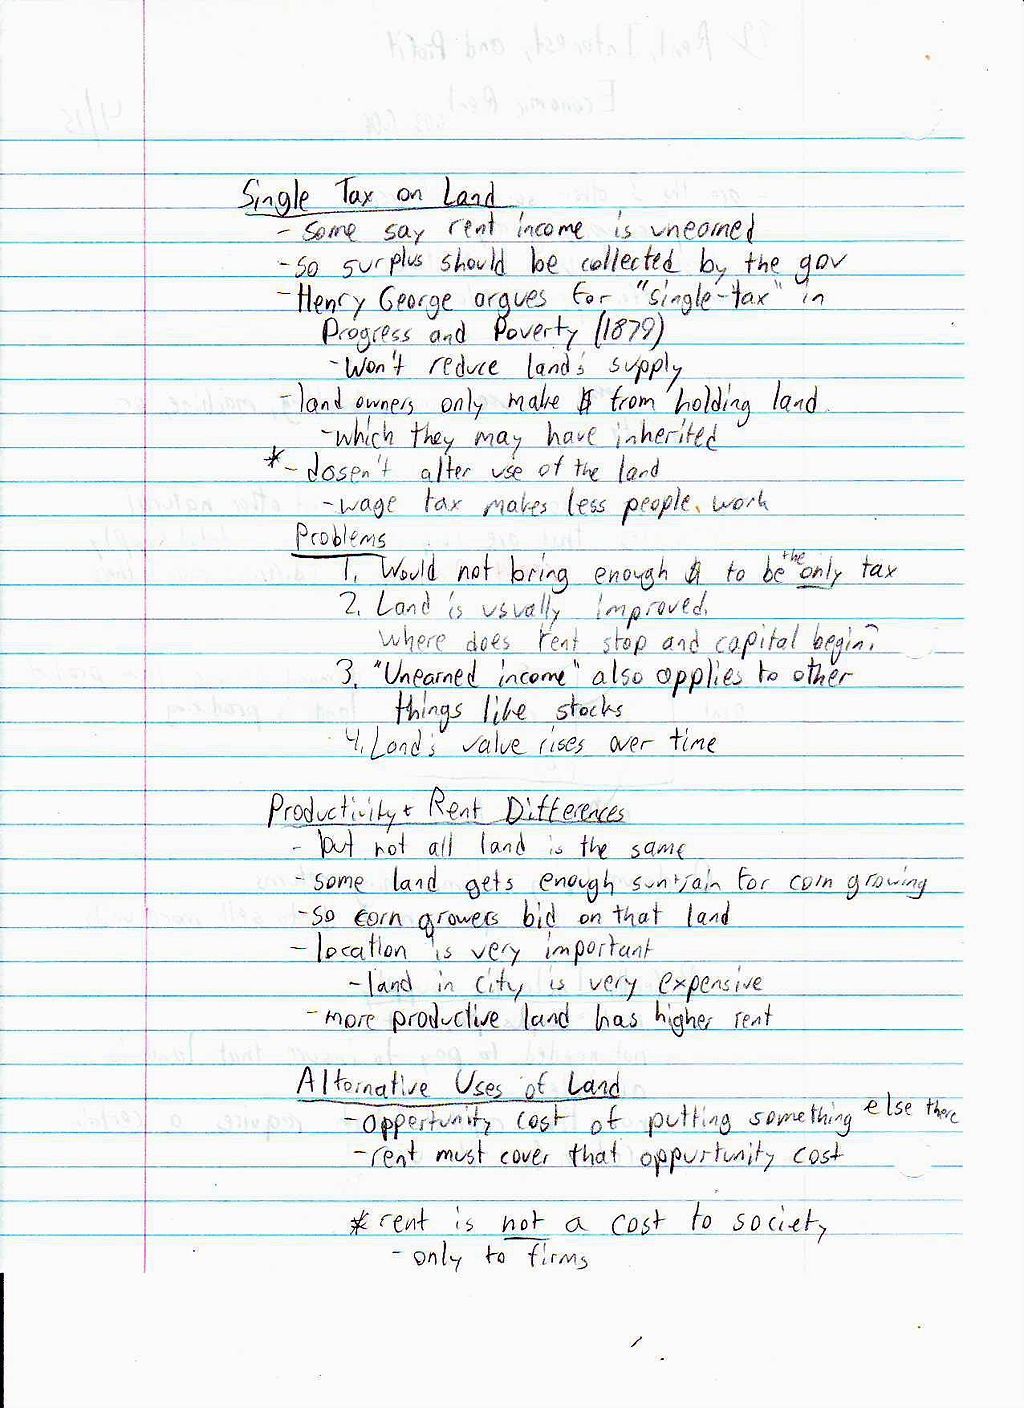 Single Tax on Land
- some say rent income is unearned
- so surplus should be collected by the gov
- Henry George argues for "single-tax" in
Progress and Poverty (1879)
- Won't reduce land's supply
- land owners only make $ from holding land
- which they may have inherited
* - dosen't alter use of the land
- wage tax makes less people work
Problems
1. Would not bring enough $ to be the only tax
2. Land is usually improved.
where does rent stop and capital begin?
3. "Unearned income" also applies to other
things like stocks
4. Land's value rises over time
Productivity + Rent Differences
- but not all land is the same
- some land gets enough sun+rain for corn growing
- so corn growers bid on that land
- location is very important
- land in city is very expensive
- more productive land has higher rent
Alternative Uses of Land
- oppertunity cost of putting something else there
- rent must cover that oppurtunity cost
* rent is not a cost to society
- only to firms